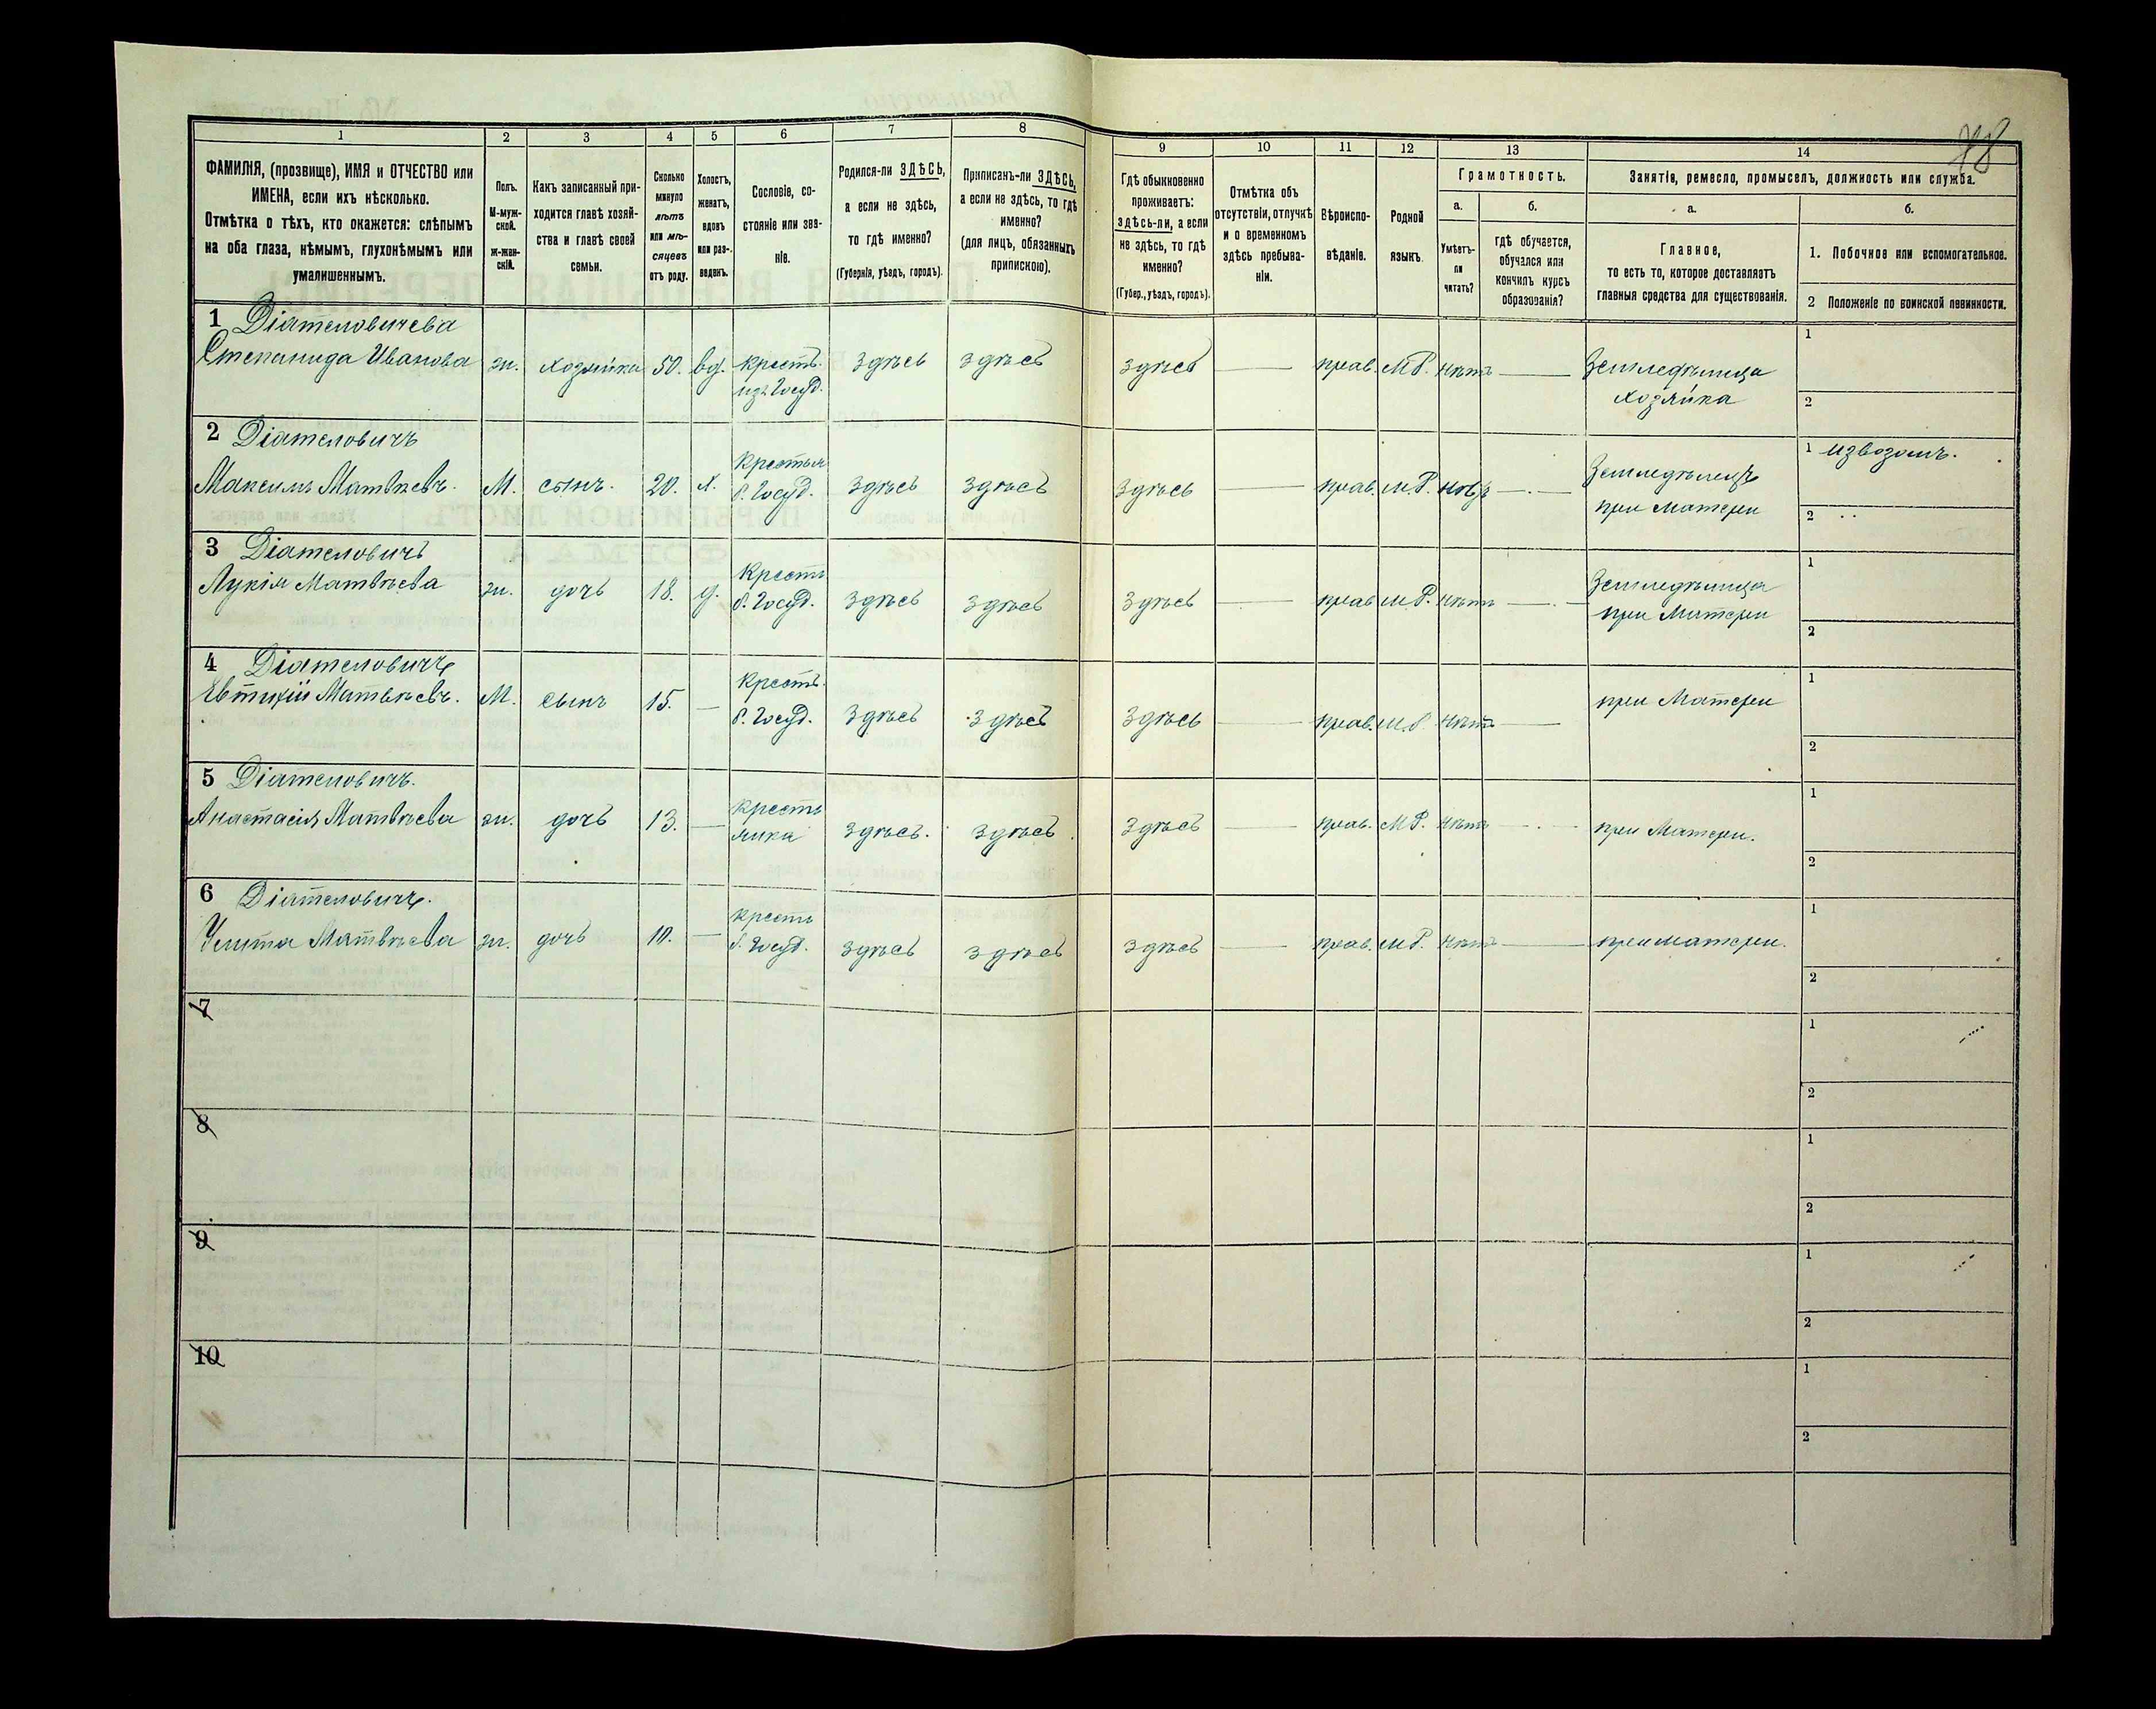 78
1 2 3 4 5 6 7 8 9 10 11 12 13 14
ФАМИЛІЯ, (прозвище), ИМЯ и ОТЧЕСТВО или
ИМЕНА, если ихъ нѣсколько.
Отмѣтка о тѣхъ, кто окажется: слѣпымъ
на оба глаза, нѣмымъ, глухонѣмымъ или
умалишеннымъ.
Полъ.
М-муж-
ской.
Ж-жен-
скій.
Какъ записанный при-
ходится главѣ хозяй-
ства и главѣ своей
семьи.
Сколько
минуло
лѣтъ
или мѣ-
сяцевъ
отъ роду.
Холостъ,
женатъ,
вдовъ
или раз-
веденъ.
Сословіе, со-
стояніе или зва-
ніе.
Родился-ли ЗДѢСЬ,
а если не здѣсь,
то гдѣ именно?
(Губернія, уѣздъ, городъ).
Приписанъ-ли ЗДѢСЬ,
а если не здѣсь, то гдѣ
именно?
(для лицъ, обязанныхъ
припискою).
Гдѣ обыкновенно
проживаетъ:
здѣсь-ли, а если
не здѣсь, то гдѣ
именно?
(Губер., уѣздъ, городъ).
Отмѣтка объ
отсутствіи, отлучкѣ
и о временномъ
здѣсь пребыва-
ніи.
Вѣроиспо-
вѣданіе.
Родной
языкъ.
Грамотность.
а.
Умѣетъ-
ли
читать?
б.
гдѣ обучается,
обучался или
кончилъ курсъ
образованія?
Занятіе, ремесло, промыселъ, должность или служба.
а.
Главное,
то есть то, которое доставляетъ
главныя средства для существованія.
б.
1. Побочное или вспомогательное.
2 Положеніе по воинской повинности.
1 Діятеловичева
Степанида Иванова ж. хозяйка 50. вд. крестъ. здѣсь здѣсь здѣсь прав. М.Р. нѣтъ Земледѣлица 1
изъ Госуд. хозяйка 2
2 Діятеловичъ
Максимъ Матвѣевъ. М. сынъ. 20. х. Крестьян б. Госуд. здѣсь здѣсь здѣсь прав. М.Р. нѣтъ Земледѣлецъ 1 извозомъ.
при матери 2
3 Діятеловичъ
Лукія Матвѣева ж. дочь 18. д. Крестъ б. Госуд. здѣсь здѣсь здѣсь прав М.Р. нѣтъ Земледѣлица 1
при Матери 2
4 Діятеловичъ
Евтихій Матвѣевъ. М. сынъ 15. Крестъ. б. Госуд. здѣсь здѣсь здѣсь прав. М.Р. нѣтъ при Матери 1
2
5 Діятеловичъ.
Анастасія Матвѣева ж. дочь 13. Кресть здѣсь. здѣсь здѣсь прав. М.Р. нѣтъ при Матери. 1
янка 2
6 Діятеловичъ.
Улита Матвѣева ж. дочь 10. Кресть б. Госуд. здѣсь здѣсь здѣсь прав. М.Р. нѣтъ при матери. 1
2
7 1
2
8 1
2
9 1
2
10 1
2